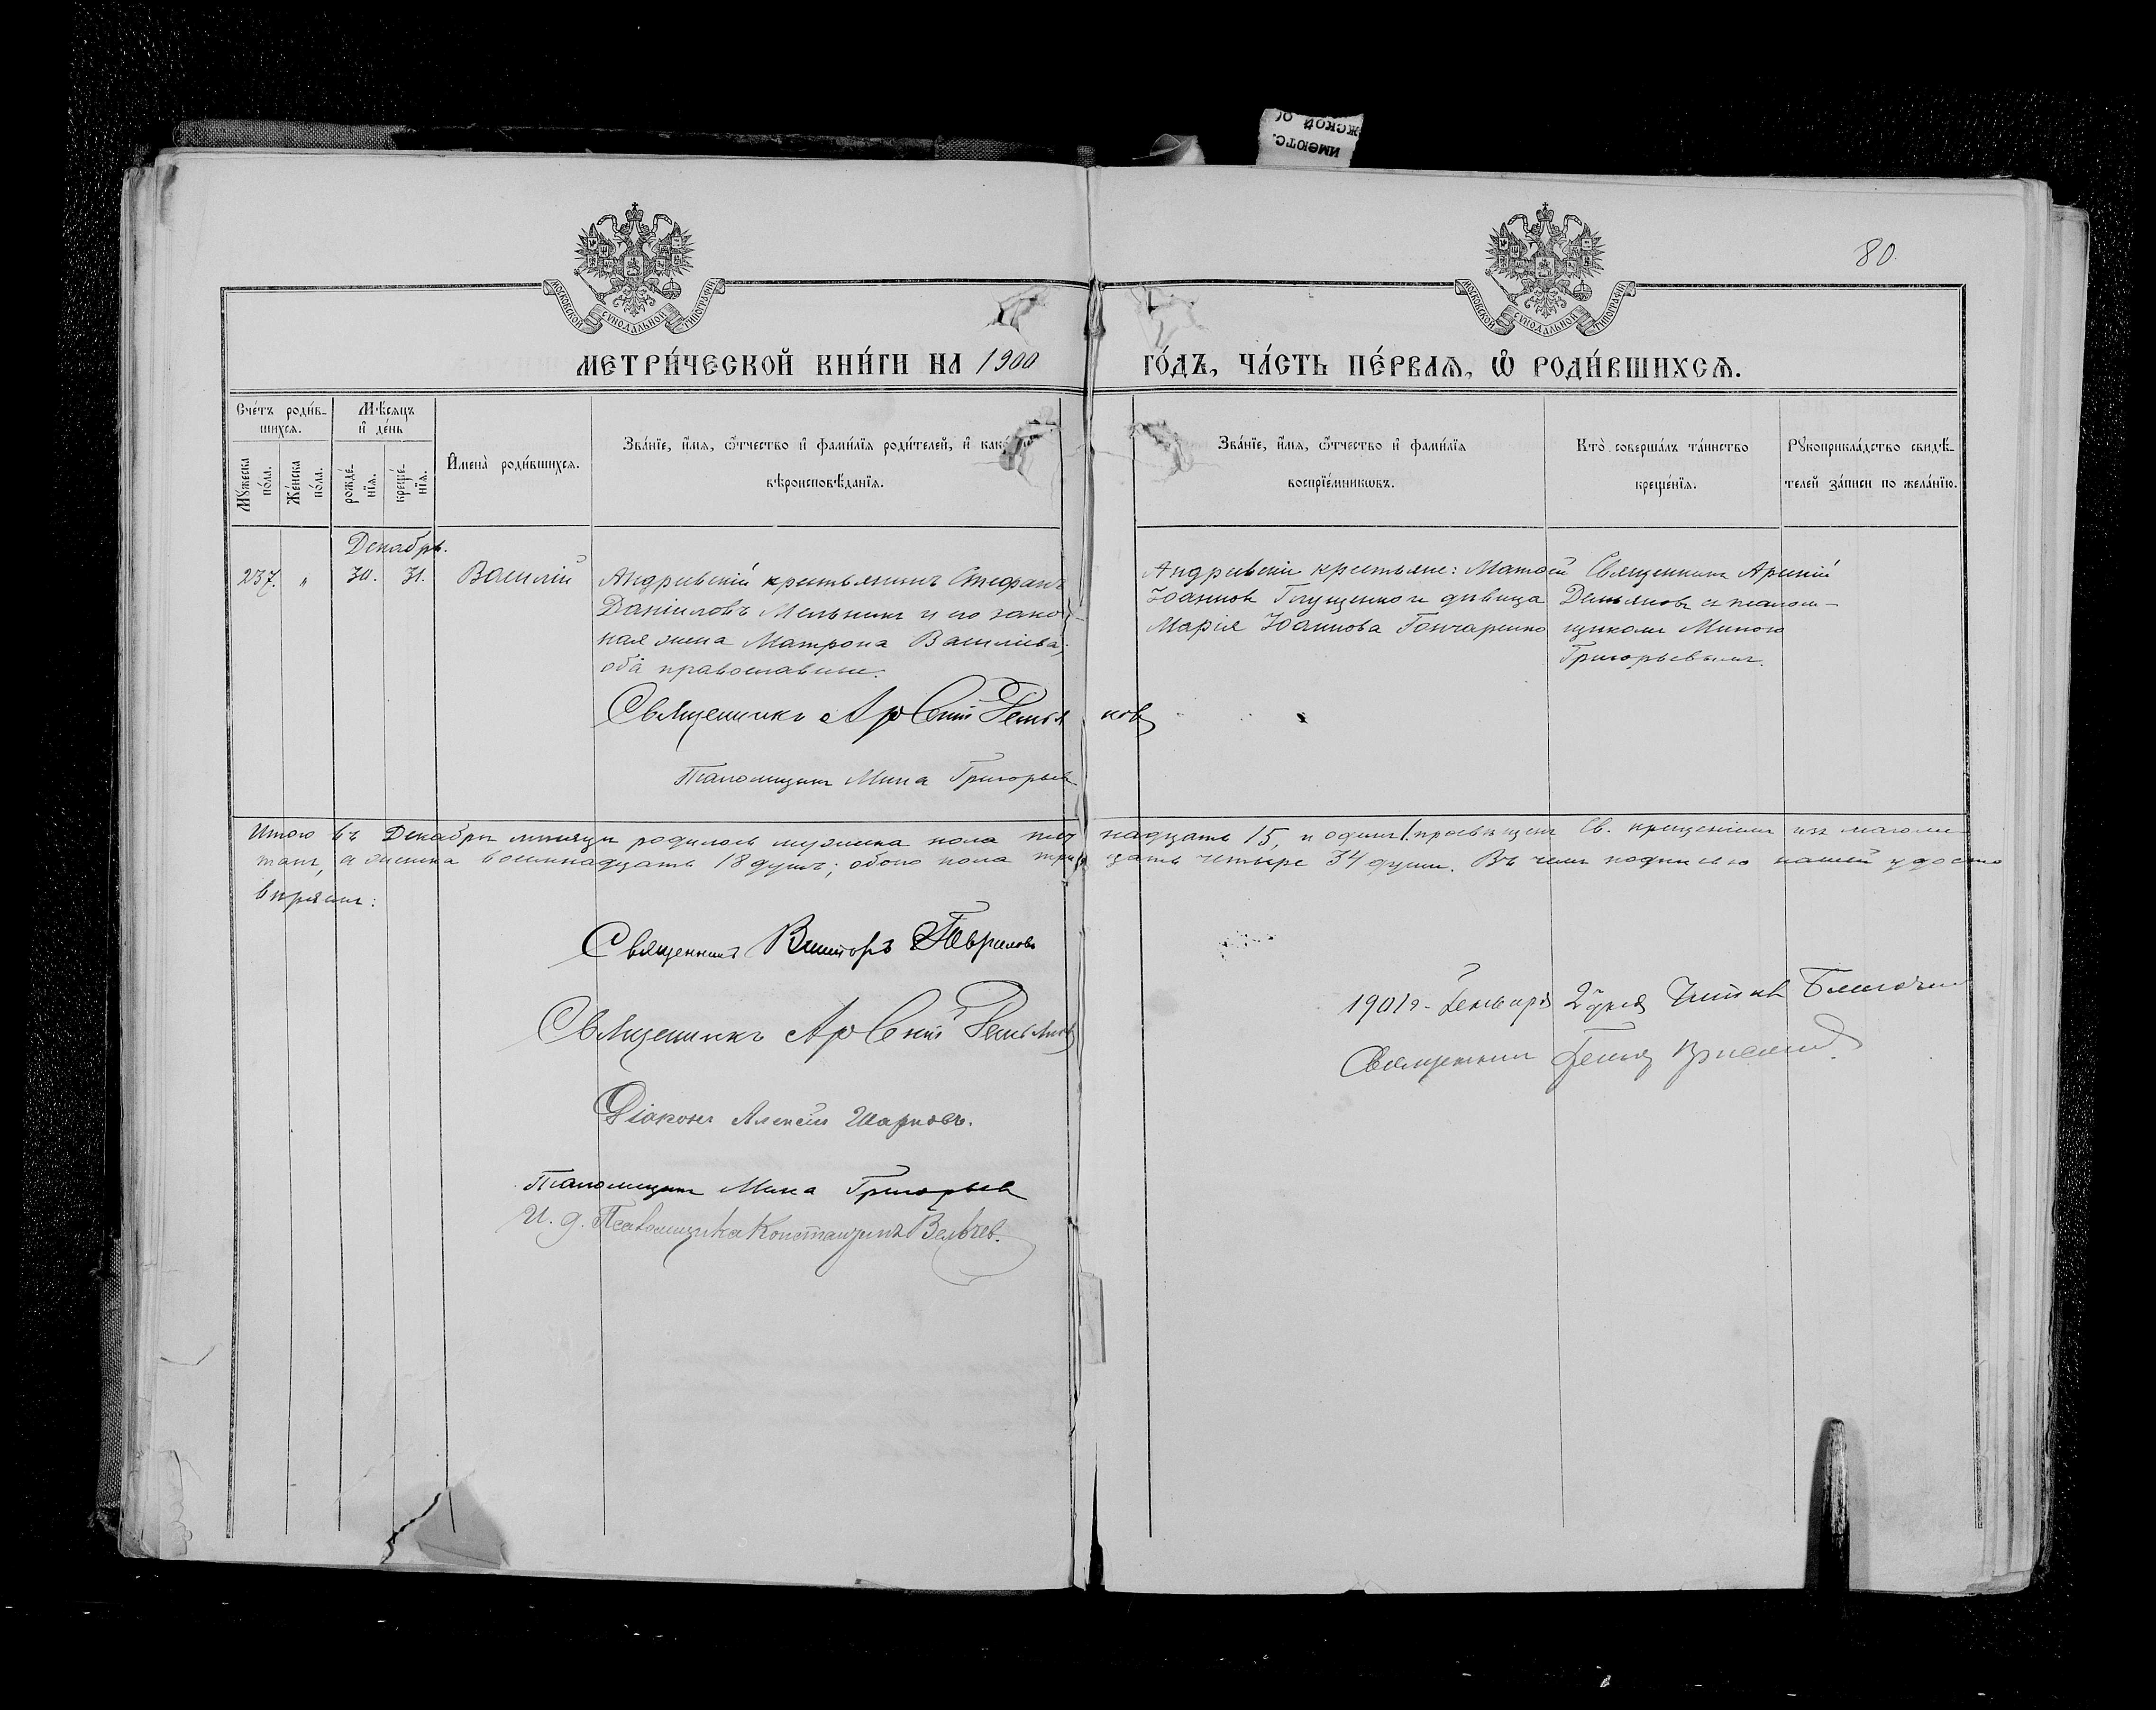 ИМЕЮТС.
ЖСКОЙ ОО
80.
МОСКОВСКОЙ СѴНОДАЛЬНОЙ ТИПОГРАФІИ
МОСКОВСКОЙ СѴНОДАЛЬНОЙ ТИПОГРАФІИ
МЕТРИ́ЧЕСКОЙ КНИ́ГИ НА 1900 ГО́ДЪ, ЧА́СТЬ ПЕ́РВАѦ, Ѡ҆ РОДИ́ВШИХСѦ.
Сче́тъ роди́в-
шихсѧ.
Мꙋ́жеска
по́ла.
Же́нска
по́ла.
Мѣ́сѧцъ
и҆ де́нь
рожде́-
нїѧ.
креще́-
нїѧ.
И҆мена̀ роди́вшихсѧ.
Зва́нїе, и҆́мѧ, ѻ҆́тчество и҆ фами́лїѧ роди́телей, и҆ как
вѣроисповѣ́данїѧ.
Зва́нїе, и҆́мѧ, ѻ҆́тчество и҆ фами́лїѧ
воспрїе́мникѡвъ.
Кто̀ соверша́лъ та́инство
креще́нїѧ.
Рꙋкоприкла́дство свидѣ́-
телей за́писи по жела́нїю.
Декабрь.
237. " 30. 31. Василій
Андреевскій крестьянинъ Стефанъ
Даніиловъ Мельникъ и его закон-
ная жена Матрона Василіева;
оба православные.
Андреевскіе крестьяне: Матѳей
Іоанновъ Глущенко и дѣвица
Марія Іоаннова Гончаренко
Священникъ Арсеній
Демьяновъ съ псалом-
щикомъ Миною
Григорьевымъ.
Священникъ Арсеній Демьяновъ
Псаломщикъ Мина Григорьевъ
Итого въ Декабрѣ мѣсяцѣ родилось мужеска пола пятнадцать 15, и одинъ 1. просвѣщенъ Св. крещеніемъ изъ магоме
танъ, а женска восемнадцать 18 душъ; обоего пола тридцать четыре 34 души. Въ чемъ подписью нашей удосто
вѣряемъ:
Священникъ Викторъ Гавриловъ
Священникъ Арсеній Демьяновъ
Діаконъ Алексій Шарповъ.
Псаломщикъ Мина Григорьевъ
И. д. Псаломщика Константинъ Вельчев.
1901 г. Генваря 2 дня Читалъ Благочин
Священникъ